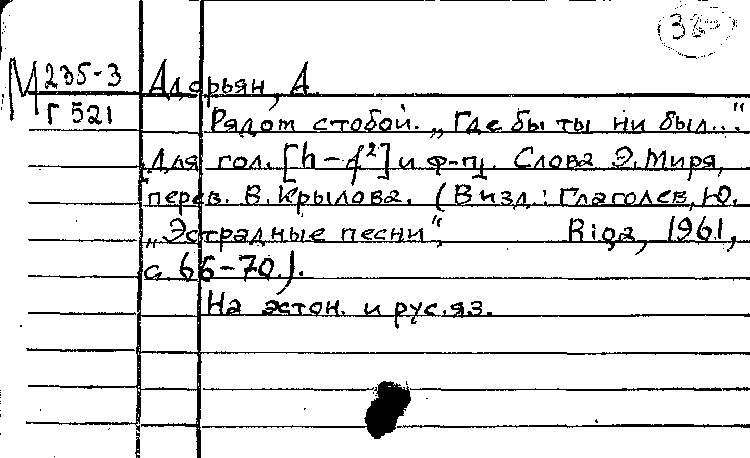 38-
М 235-3
Г 521
Адорьян, А.
Рядом с тобой. „Где бы ты ни был..."
Для гол. [h-f²] и ф-п. Слова Э. Миря,
перев. В. Крылова. (В изд.: Глаголев, Ю.
„Эстрадные песни", Riga, 1961,
с. 66-70.).
На эстон. и рус. яз.